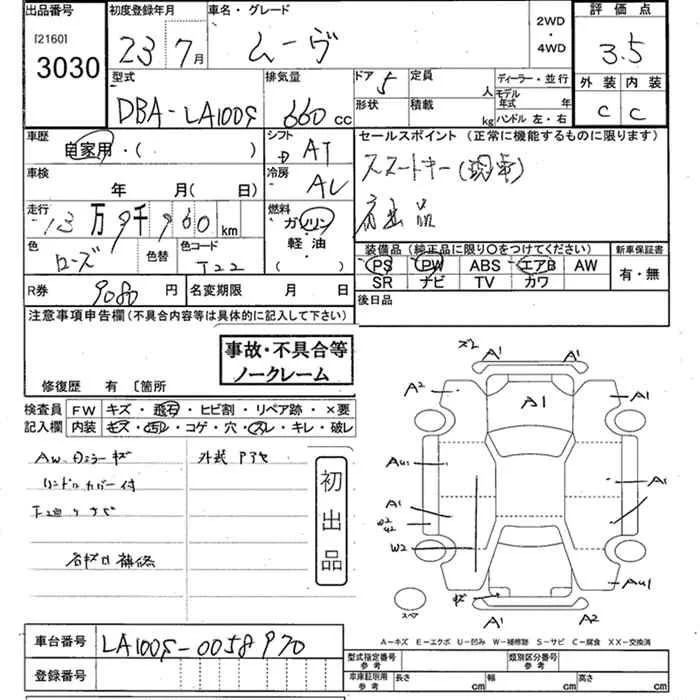 出品番号 初度登録年月 車名・グレード 2WD ・ 4WD 評価点
[2160]
3030
23年7月 ムーヴ 3.5
型式 排気量 ドア 定員 人 ディーラー・並行 外装 内装
DBA-LA100S 660cc 5 形状 積載 kg モデル年式 年 ハンドル 左・右 C C
車歴 自家用・( ) シフト AT セールスポイント (正常に機能するものに限ります)
車検 年 月(日) 冷房 AC スマートキー
走行 13万9千960km 燃料 ガソリン 軽油 ( ) 初出品
色 ローズ 色替 色コード T22
装備品 (純正品に限り○をつけてください) 新車保証書
PS PW ABS エアB AW 有・無
SR ナビ TV カワ
R券 9080円 名変期限 月 日 後日品
注意事項申告欄(不具合内容等は具体的に記入して下さい)
事故・不具合等
ノークレーム
修復歴 有 〔箇所
検査員 記入欄 FW キズ・飛石・ヒビ割・リペア跡・×要
内装 キズ・汚レ・コゲ・穴・スレ・キレ・破レ
AW、ミラーキズ 外装
ハンドルカバー付
初出品
補修
ズミ A1 A1
A2 A1 A1
AU1 A1
A1
W2 U2
W2
AU1
スペア キズ A1 A2
A-キズ E-エクボ U-凹み W-補修跡 S-サビ C-腐食 XX-交換済
車台番号 LA100S-0058970
登録番号
型式指定番号 参考 類別区分番号 参考
車庫証明用 参考 長さ cm 幅 cm 高さ cm